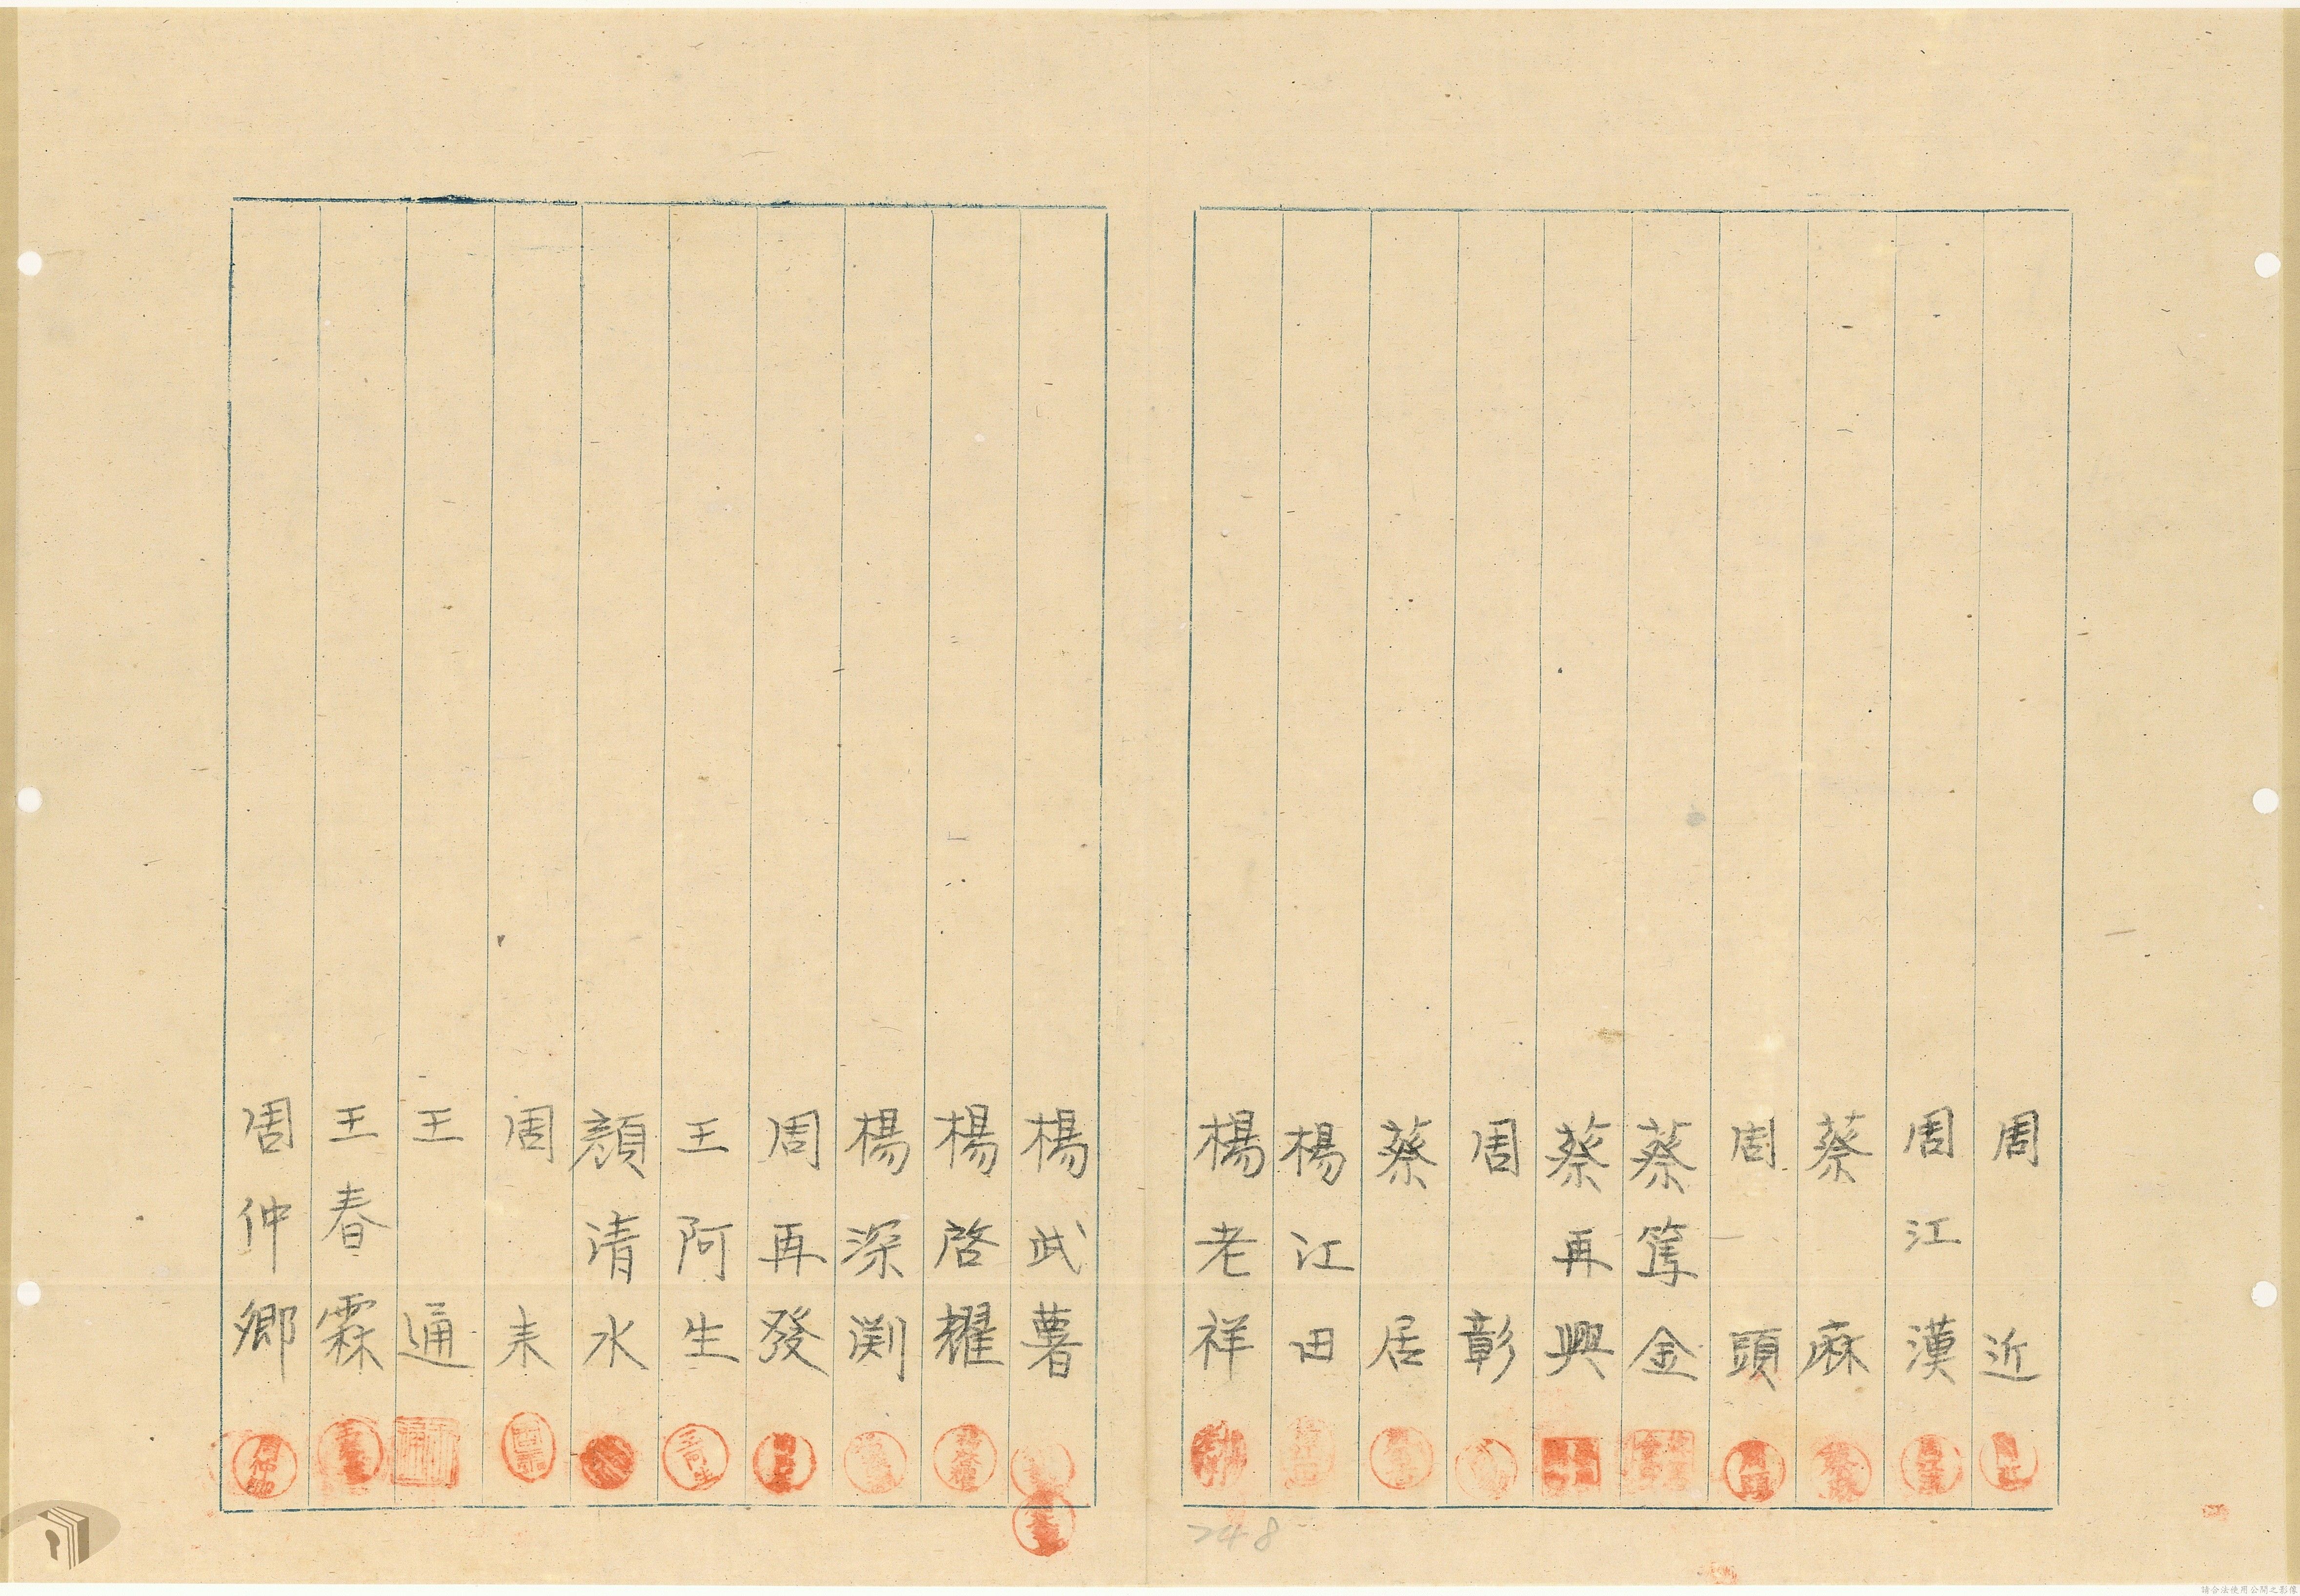 周近
周江漢
蔡麻
周頭
蔡篤金
蔡再興
周彰
蔡居
楊江田
楊老祥
楊武薯
楊啓耀
楊深渕
周再發
王阿生
顏清水
周耒
王通
王春霖
周仲鄉
748
請合法使用公開之影像